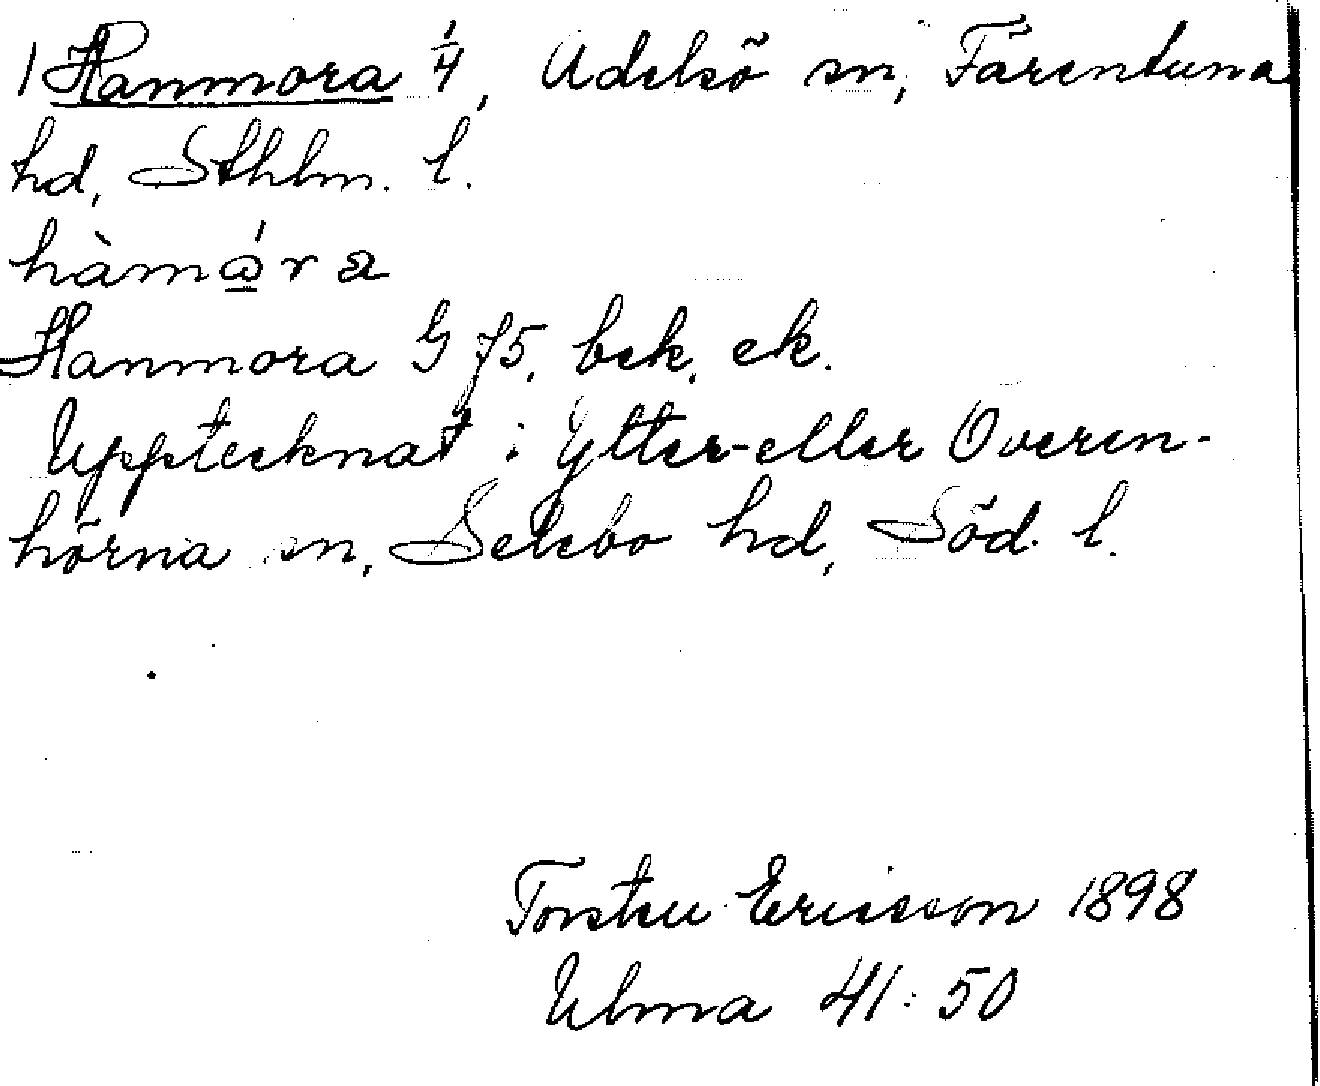 1 Hanmora 1/4, Adelsö sn, Färentuna
hd, Sthlm. l.
hàmɷ́ra
Hanmora G J5, bek. ek.
Upptecknat i Ytter- eller Överen-
hörna sn, Selebo hd, Söd. l.
Torsten Ericsson 1898
Ulma 41:50